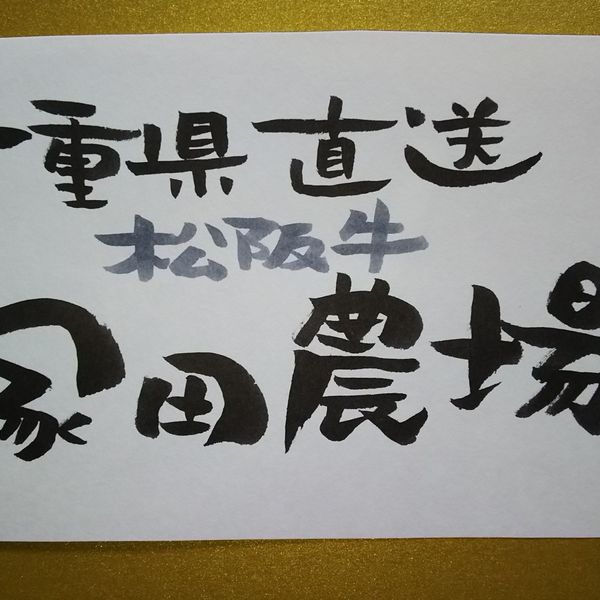 重県直送
松阪牛
塚田農場